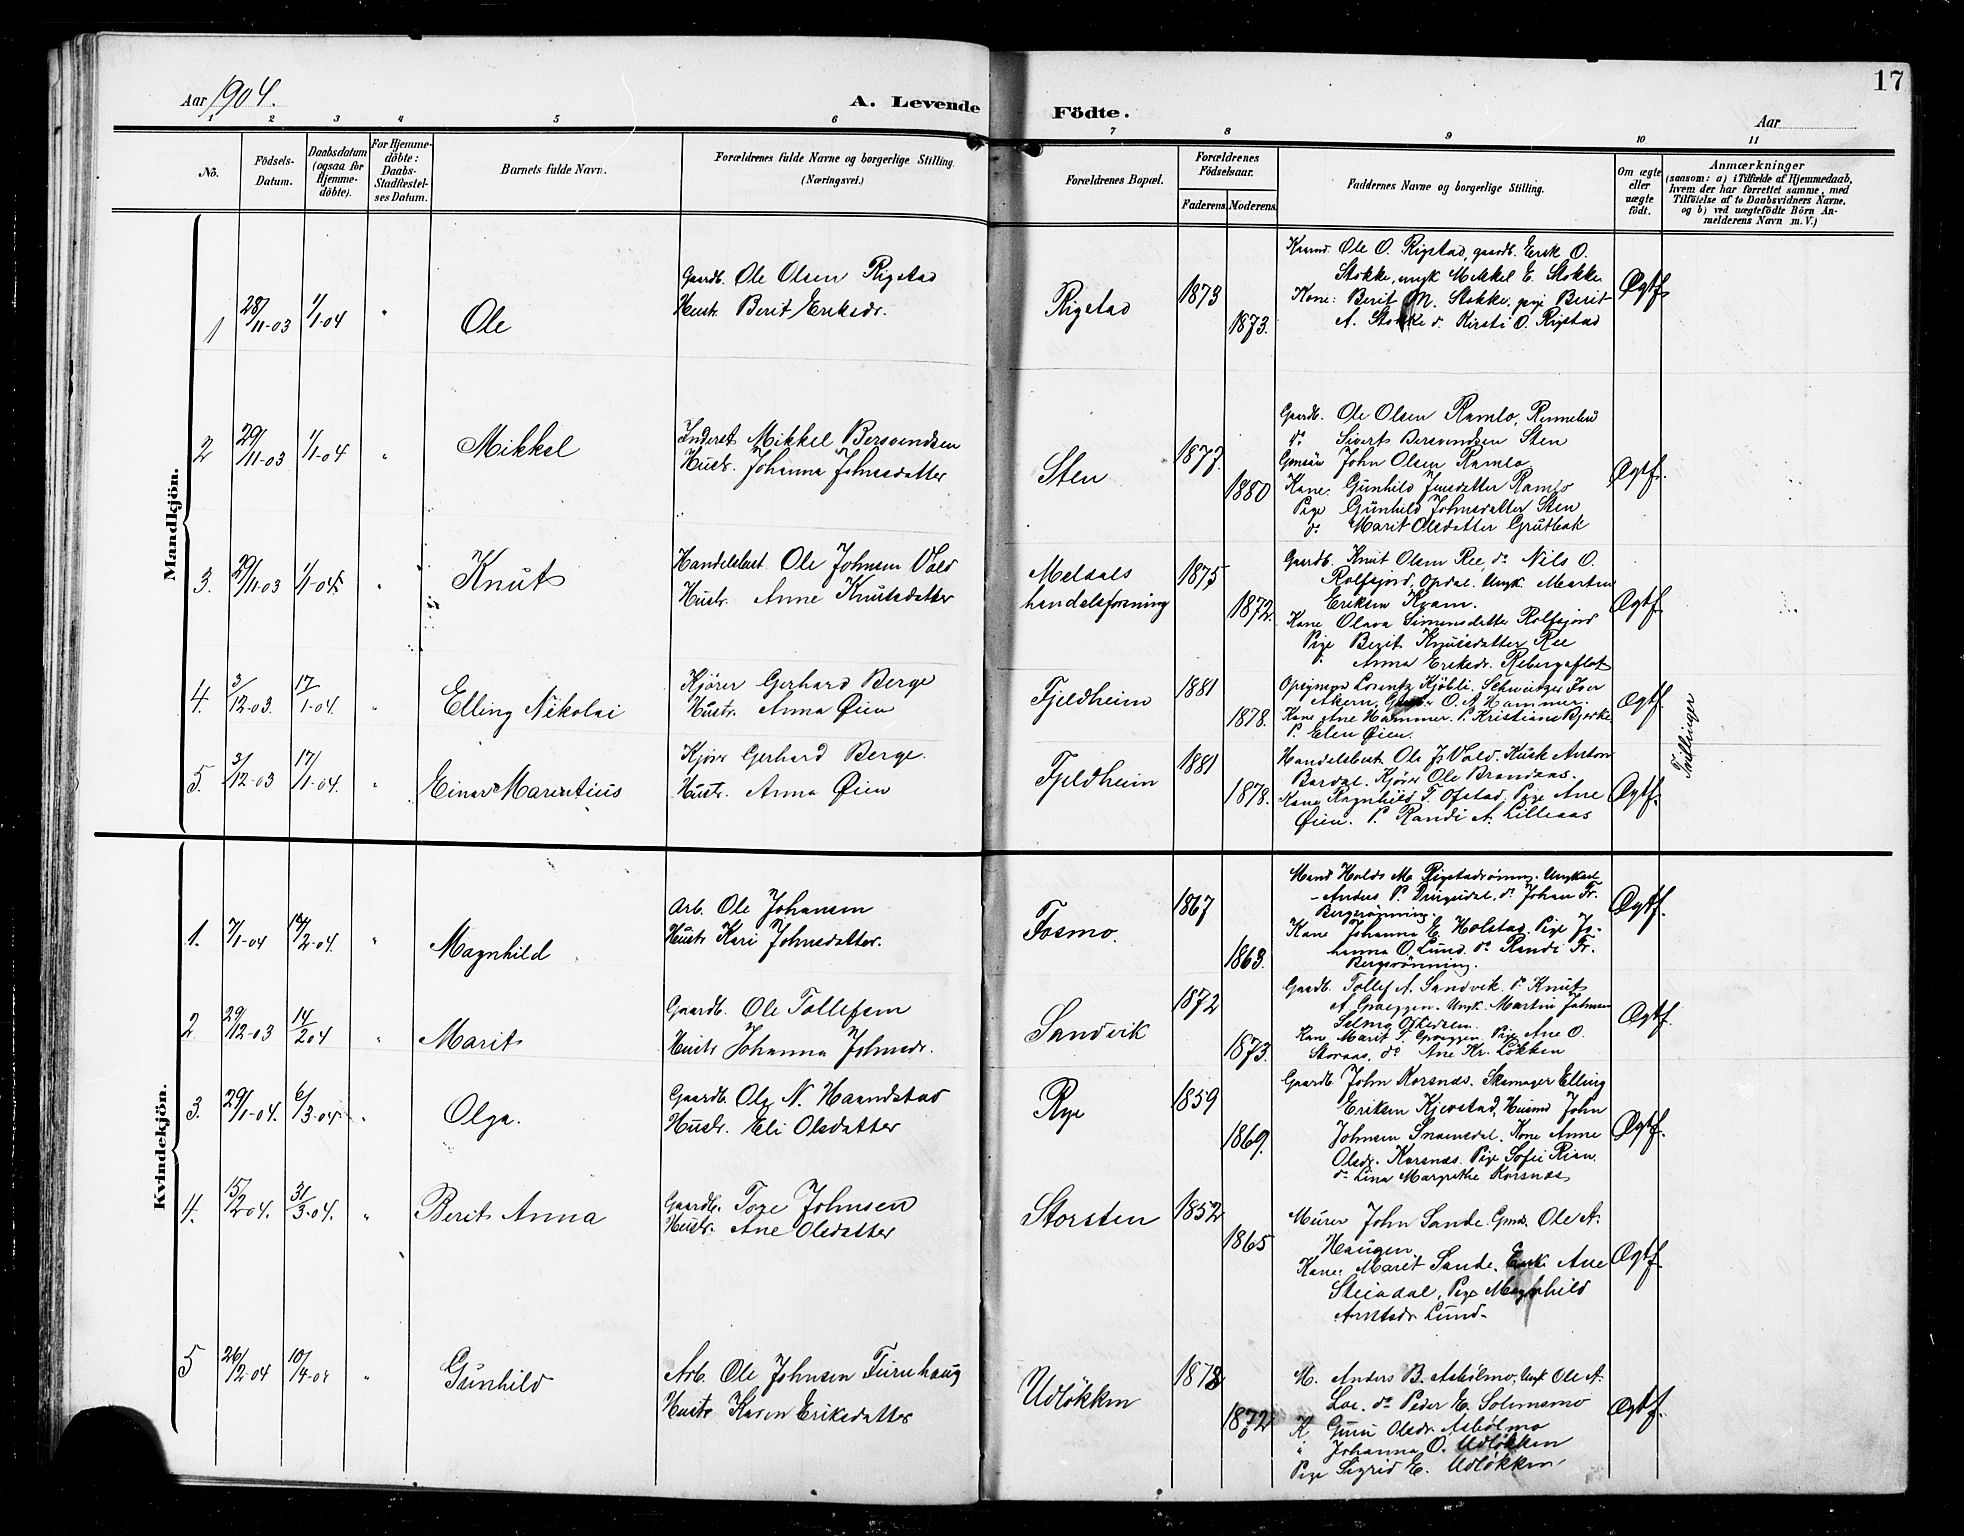 17
Aar 1904.
A. Levende Födte.
Aar
1 2 3 4 5 6 7 8 9 10 11
No.
Födsels-Datum.
Daabsdatum (ogsaa for Hjemme-döbte).
For Hjemme-döbte: Daabs-Stadfæstel-ses Datum.
Barnets fulde Navn.
Forældrenes fulde Navne og borgerlige Stilling. (Næringsvei.)
Forældrenes Bopæl.
Forældrenes Födselsaar.
Faderens. Moderens.
Faddernes Navne og borgerlige Stilling.
Om ægte eller uægte födt.
Anmærkninger
(saasom: a) i Tilfælde af Hjemmedaab,
hvem der har forrettet samme, med
Tilföielse af to Daabsvidners Navne,
og b) ved uægtefödte Börn An-
melderens Navn m. V.)
Mandkjön.
1 28/11-03 1/1-04 " Ole
Gaardb. Ole Olsen Rigstad
Hustr. Berit Eriksdr.
Rigstad 1873 1873.
Kaarmd. Ole O. Rigstad, gaardb. Erik O.
Stokke, ungk Mikkel E. Stokke.
Kone: Berit M. Stokke, pige Berit
A. Stokke do Kirsti O. Rigstad
Ægtf.
2 29/11-03 1/1-04 " Mikkel
Inderst Mikkel Bersvendsen
Hustr. Johanna Johnsdatter
Sten 1877. 1880
Gaardb. Ole Olsen Ramlo, Rennebu
do Sivert Bersvendsen Sten
John Olsen Ramlo
Kone: Gunhild Jensdatter Ramlo
Pige Gunhild Johnsdatter Sten
do Marit Olsdatter Grutbak
Ægtf.
3. 29/11-03 1/1-04 " Knut
Handelsbest. Ole Johnsen Vold
Hustr. Anne Knutsdatter
Meldals handelsforening 1875 1872.
Gaardb. Knut Olsen Ree do Nils O.
Rolfsjord, Opdal. Ungk. Marten
Eriksen Kvam.
Kone Olava Simensdatter Rolfsjord
Pige Berit Knutsdatter Ree
" Anna Eriksdr. Rebergsflot
Ægtf.
4. 3/12-03. 17/1-04. " Elling Nikolai
Kjører Gerhard Berge
Hustr. Anna Øien
Fjeldheim 1881 1878.
Opsynsmd Lorentz Kjøbli, Schweitzer Iver
Akern, O. A. Hammer.
Kone Ane Hammer. P. Kristiane Bjerke
P. Elen Øien.
Ægtf.
Tvillinger
5. 3/12-03 17/1-04. " Einar Marentius
Kjører Gerhard Berge.
Hustr. Anna Øien
Fjeldheim 1881 1878.
Handelsbest. Ole J. Vold. Kusk Anton
Bardal. Kjører Ole Brandaas.
Kone Ragnhild T. Ofstad, Pige Ane
Øien. P. Randi A. Lilleaas
Ægtf.
Kvindekjön.
1. 7/1-04 14/2-04. " Magnhild
Arb. Ole Johansen
Hustr Kari Johnsdatter.
Fosmo. 1867 1863.
Mand Halds M. Rigstadrönning. Ungkarl
Anders P. Dragsdal, do Johan Fr.
Bergsrönning.
Kone Johanna E. Holstad. Pige Jo-
hanna O. Lund do Randi Fr.
Bergsrönning.
Ægtf.
2 29/12-03 14/2 04 " Marit
Gaardb. Ole Tollefsen
Hustr Johanna Johnsdr.
Sandvik 1872 1873.
Gaardb. Tollef A. Sandvik. do Knut
A. Græggen. Ungk. Martin Johnsen
Kone Marit T. Græggen, Pige Ane O.
Storaas, do Ane Kr. Løkken
Ægtf.
3. 29/1-04. 6/3-04 " Olga.
Gaardb. Ole N. Haandstad
Hustr. Eli Olsdatter
Rye 1859 1869.
Gaardb. John Korsnæs. Skomager Elling
Eriksen Kjerstad, Husmd John
Johnsen Snoensdal. Kone Anne
Olsdr. Korsnæs. Pige Sofie Rian,
do Lina Margrethe Korsnæs
Ægtf.
4. 15/2 04. 31/3-04. " Berit Anna
Gaardbr. Tore Johnsen
Hustr. Ane Olsdatter
Storsten 1852 1865
Murer John Sande. Gmd. Ole A.
Haugen.
Kone: Marit Sande, Enke Ane
Steiadal, Pige Magnhild
Arntsdr Lund.
Ægtf.
5 26/2-04 10/4-04 " Gunhild
Arb. Ole Johnsen Furuhaug
Hustr Karen Eriksdatter
Udløkken 1873 1872
M. Anders B. Asbölmo, Ungk Ole A.
Loe. do Peder E. Solemsmo
K Guru Olsdr Asbölmo
" Johanna O. Udløkken
Pige Sigrid E. Udløkken
Ægtf.